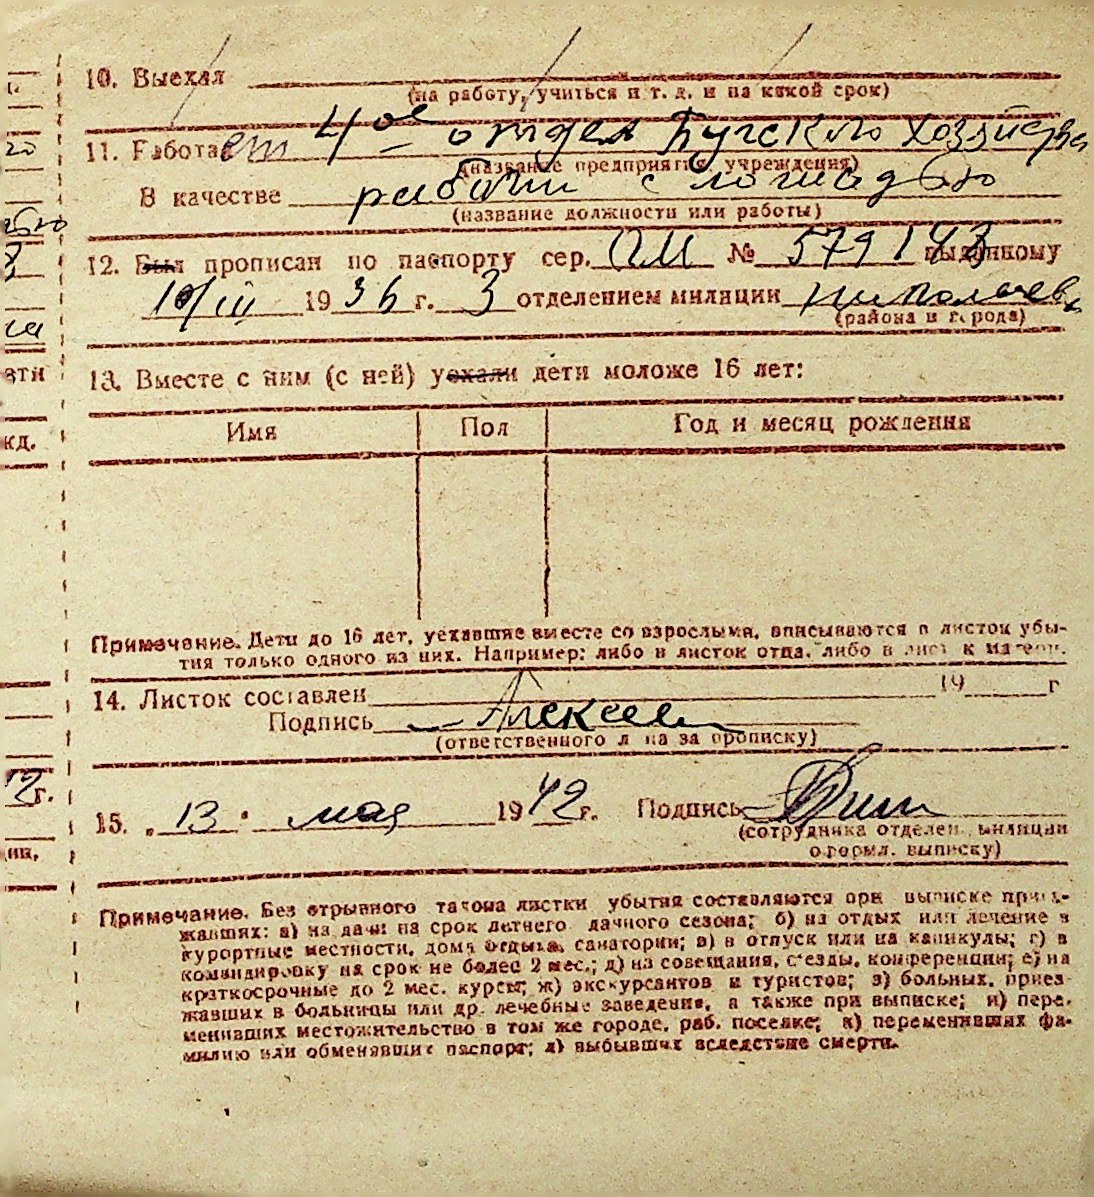 10. Выехал
(на работу, учиться и т. д. и на какой срок)
11. Работает 4ое отдел Бугского хозяйства
(название предприятия, учреждения)
В качестве рабочий с лошадью
(название должности или работы)
12. Был прописан по паспорту сер. ПМ № 579143 выданному
10/III 1936 г. 3 отделением милиции Николаев
(района и города)
13. Вместе с ним (с ней) уехали дети моложе 16 лет:
Имя Пол Год и месяц рождения
Примечание. Дети до 16 лет, уехавшие вместе со взрослыми, вписываются в листок убы-
тия только одного из них. Например: либо в листок отца, либо в листок матери.
14. Листок составлен 19 г
Подпись Алексеев
(ответственного лица за прописку)
15. „13" мая 1942 г. Подпись
(сотрудника отделен. милиции
оформл. выписку)
Примечание. Без отрывного талона листки убытия составляются при выписке приез-
жавших: а) на дачи на срок летнего дачного сезона; б) на отдых или лечение в
курортные местности, дома отдыха, санатории; в) в отпуск или на каникулы; г) в
командировку на срок не более 2 мес.; д) на совещания, съезды, конференции; е) на
краткосрочные до 2 мес. курсы; ж) экскурсантов и туристов; з) больных, приез-
жавших в больницы или др. лечебные заведения, а также при выписке; и) пере-
менивших местожительство в том же городе, раб. поселке; к) переменивших фа-
милию или обменявших паспорт; л) выбывших вследствие смерти.